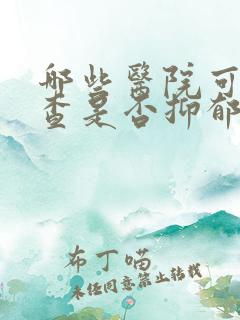 哪些醫院可
查是否抑郁
布丁喵
未经同意禁止转载